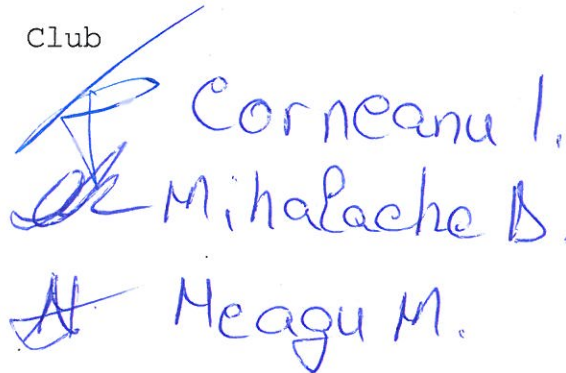 Club
Corneanu I.
Mihalache D.
Neagu M.